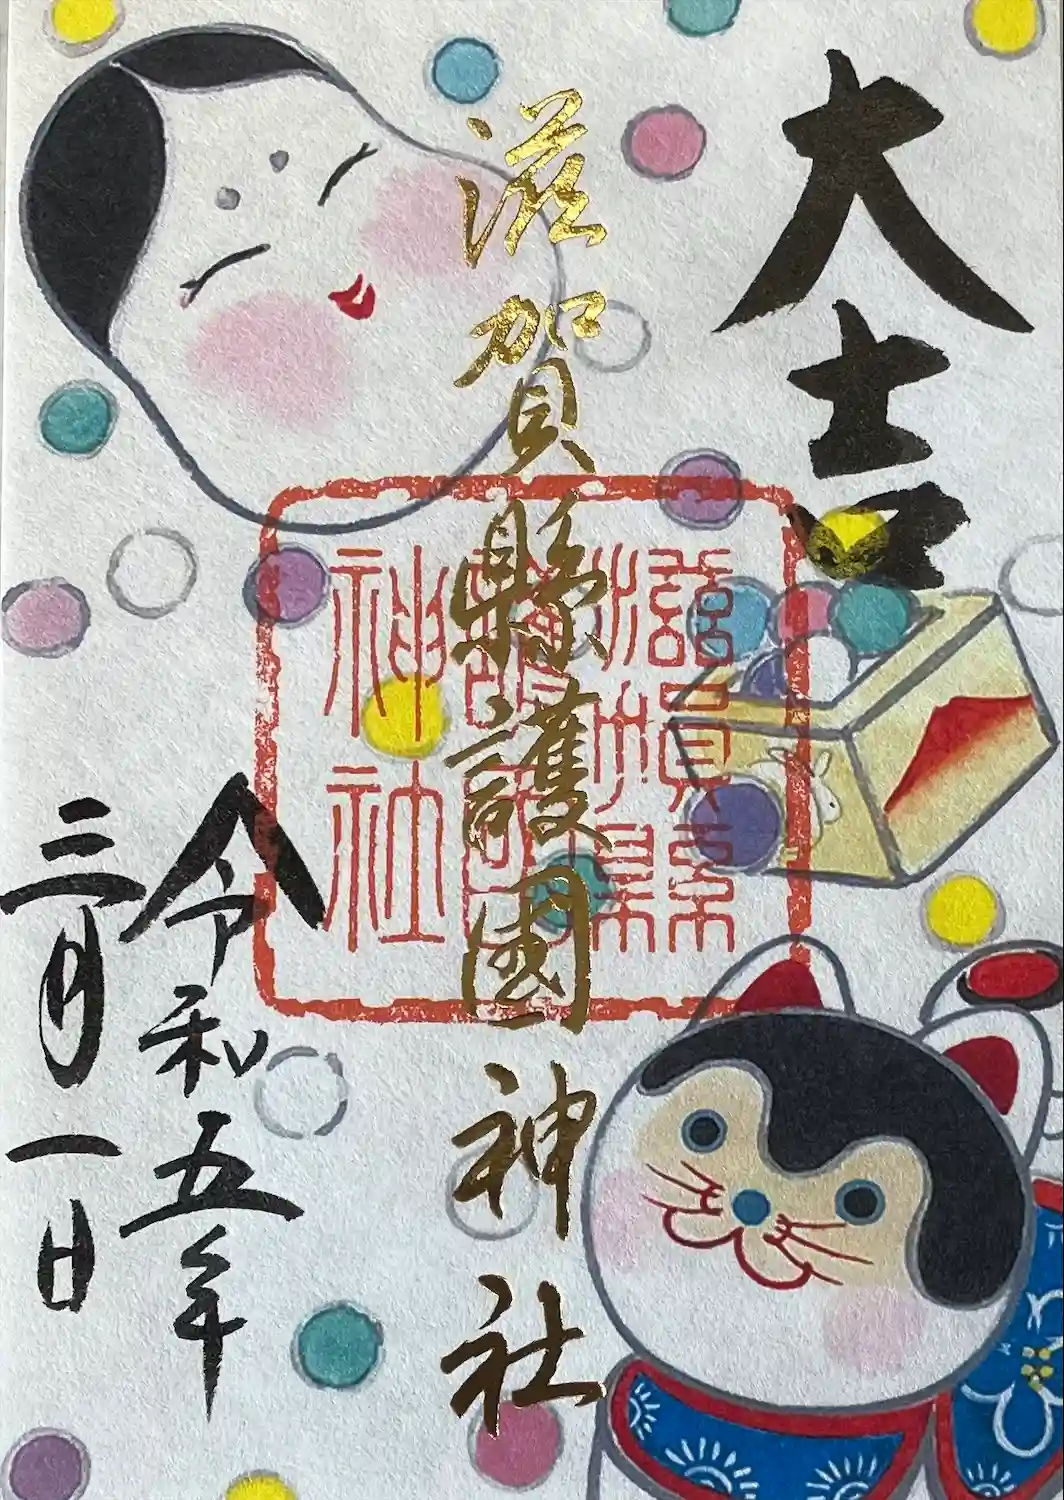 大吉
滋賀縣護國神社
滋賀県護国神社
令和五年
三月一日